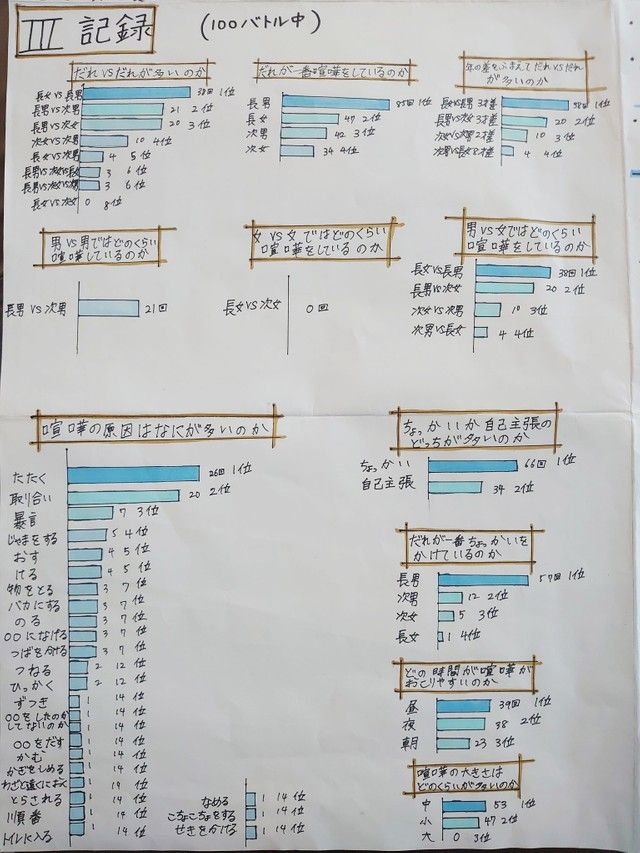 III 記録
(100バトル中)
だれVSだれが多いのか
長女VS長男 38回 1位
長男VS次男 21 2位
長男VS次女 20 3位
次女VS次男 10 4位
長女VS次男 4 5位
3 6位
3 6位
長女VS次女 0 8位
だれが一番喧嘩をしているのか
長男 85回 1位
長女 47 2位
次男 42 3位
次女 34 4位
年の差をふまえてだれVSだれ
が多いのか
長女VS長男 3才差 58回 1位
長男VS次女 3才差 20 2位
次女VS次男 2才差 10 3位
次男VS長女 8才差 4 4位
男VS男ではどのくらい
喧嘩をしているのか
長男VS次男 21回
女VS女ではどのくらい
喧嘩をしているのか
長女VS次女 0回
男VS女ではどのくらい
喧嘩をしているのか
長女VS長男 38回 1位
長男VS次女 20 2位
次女VS次男 10 3位
次男VS長女 4 4位
喧嘩の原因はなにが多いのか
たたく 26回 1位
取り合い 20 2位
暴言 7 3位
じゃまをする 5 4位
おす 4 5位
ける 4 5位
物をとる 3 7位
バカにする 3 7位
のる 3 7位
〇〇になげる 3 7位
つばを付ける 3 7位
つねる 2 12位
ひっかく 2 12位
ずつき 1 14位
〇〇をしたのか
してないのか 1 14位
〇〇をだす 1 14位
かむ 1 14位
かぎをしめる 1 14位
わざと遠くにおく 1 14位
とらされる 1 14位
順番 1 14位
トイレに入る 1 14位
なめる 1 14位
こちょこちょをする 1 14位
せきをかける 1 14位
ちょっかいか自己主張の
どっちが多いのか
ちょっかい 66回 1位
自己主張 34 2位
だれが一番ちょっかいを
かけているのか
長男 57回 1位
次男 12 2位
次女 5 3位
長女 1 4位
どの時間が喧嘩が
おこりやすいのか
昼 39回 1位
夜 38 2位
朝 23 3位
喧嘩の大きさは
どのくらいが多いのか
中 53 1位
小 47 2位
大 0 3位